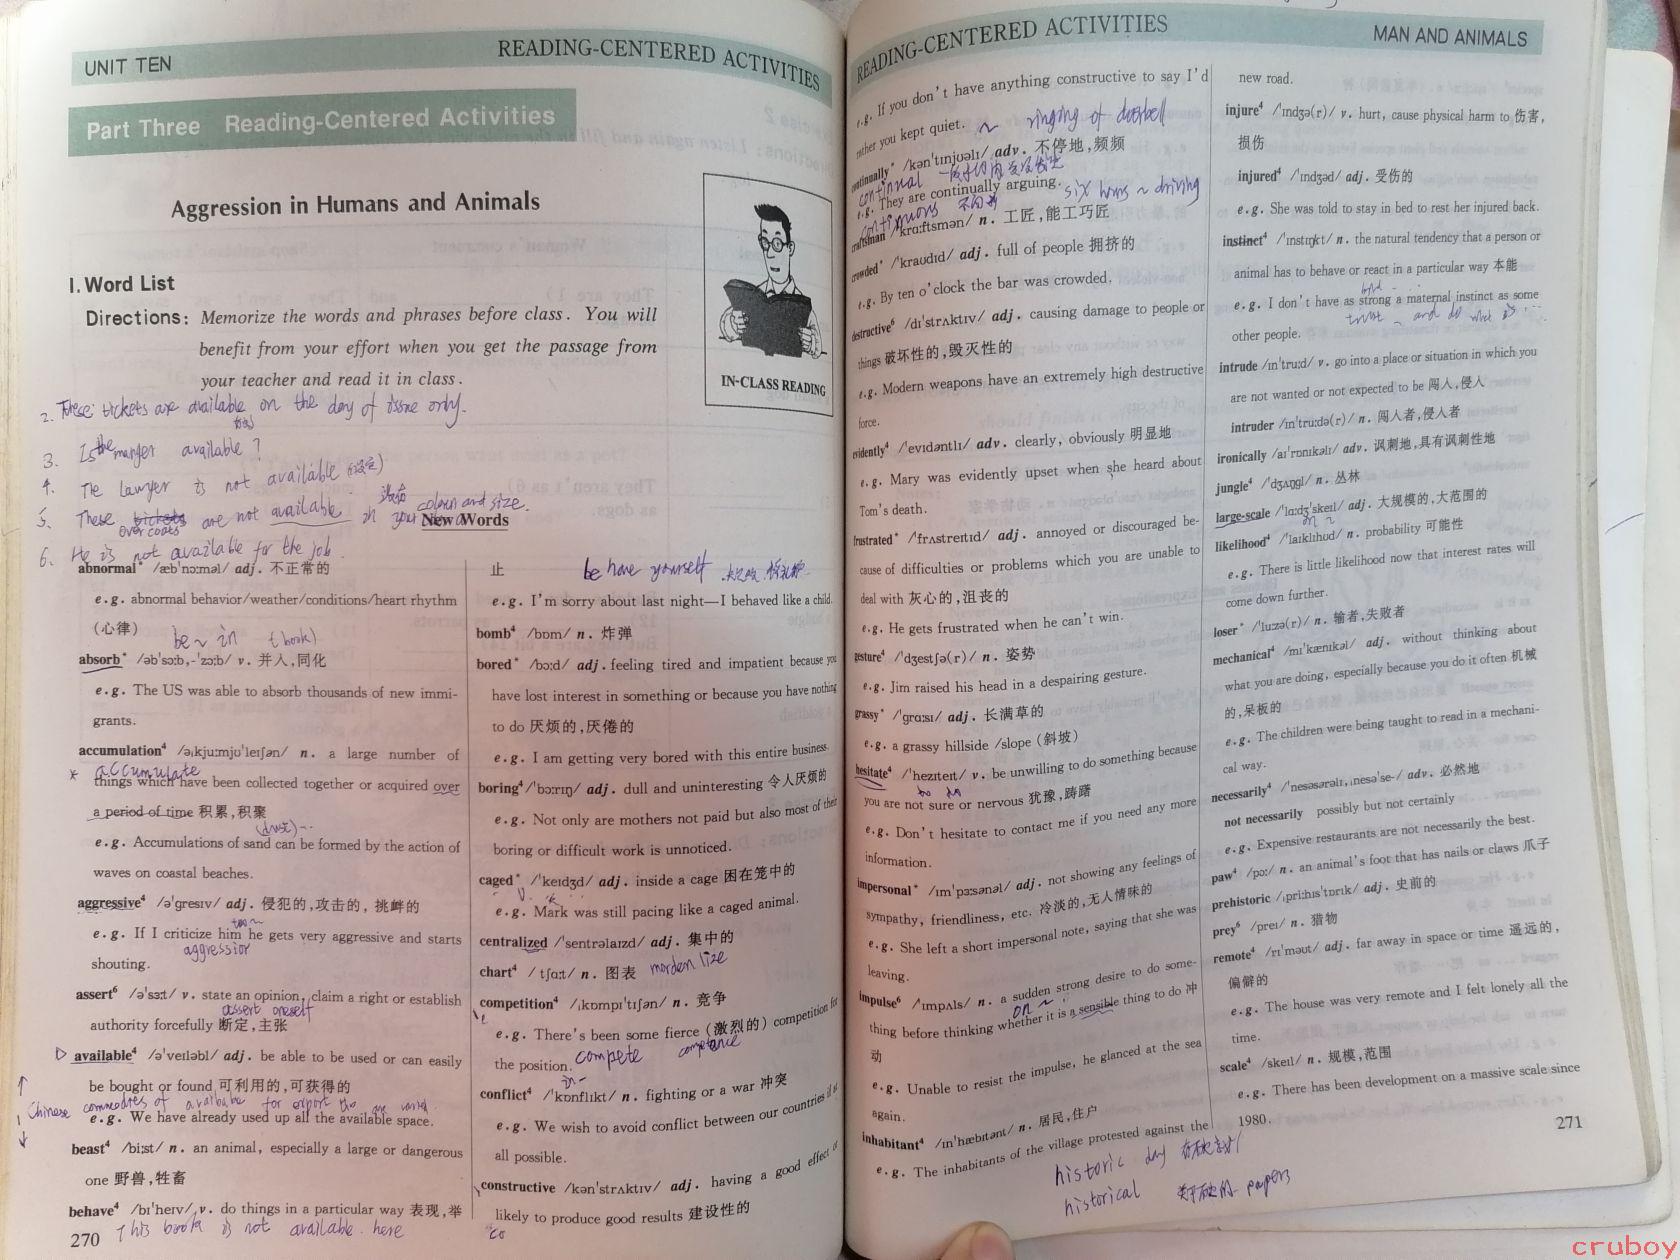 UNIT TEN
READING-CENTERED ACTIVITIES
Part Three Reading-Centered Activities
Aggression in Humans and Animals
IN-CLASS READING
I. Word List
Directions: Memorize the words and phrases before class. You will
benefit from your effort when you get the passage from
your teacher and read it in class.
2. These tickets are available on the day of issue only.
3. Is the manger available?
4. The lawyer is not available
5. These tickets are not available in your
overcoats
colour and size.
6. He is not available for the job.
New Words
abnormal* /æb'nɔ:məl/ adj. 不正常的
e.g. abnormal behavior/weather/conditions/heart rhythm
(心律)
be ~ in (book)
absorb* /əb'sɔ:b,-'zɔ:b/ v. 并入,同化
e.g. The US was able to absorb thousands of new immi-
grants.
accumulation⁴ /əˌkju:mjʊ'leɪʃən/ n. a large number of
accumulate
things which have been collected together or acquired over
a period of time 积累,积聚
(dust)
e.g. Accumulations of sand can be formed by the action of
waves on coastal beaches.
aggressive⁴ /ə'gresɪv/ adj. 侵犯的,攻击的, 挑衅的
e.g. If I criticize him he gets very aggressive and starts
aggression
shouting.
assert⁶ /ə'sɜ:t/ v. state an opinion, claim a right or establish
assert oneself
authority forcefully 断定,主张
available⁴ /ə'veɪləbl/ adj. be able to be used or can easily
be bought or found 可利用的,可获得的
Chinese commodities of available for export
e.g. We have already used up all the available space.
beast⁴ /bi:st/ n. an animal, especially a large or dangerous
one 野兽,牲畜
behave⁴ /bɪ'heɪv/ v. do things in a particular way 表现,举
This book is not available here
270
止
behave yourself
e.g. I'm sorry about last night—I behaved like a child.
bomb⁴ /bɒm/ n. 炸弹
bored* /bɔ:d/ adj. feeling tired and impatient because you
have lost interest in something or because you have nothing
to do 厌烦的,厌倦的
e.g. I am getting very bored with this entire business.
boring⁴ /'bɔ:rɪŋ/ adj. dull and uninteresting 令人厌烦的
e.g. Not only are mothers not paid but also most of their
boring or difficult work is unnoticed.
caged* /'keɪdʒd/ adj. inside a cage 困在笼中的
e.g. Mark was still pacing like a caged animal.
centralized /'sentrəlaɪzd/ adj. 集中的
chart⁴ /tʃɑ:t/ n. 图表 mordenlize
competition⁴ /ˌkɒmpɪ'tɪʃən/ n. 竞争
e.g. There's been some fierce (激烈的) competition for
the position. compete competence
conflict⁴ /'kɒnflɪkt/ n. fighting or a war 冲突
e.g. We wish to avoid conflict between our countries if at
all possible.
constructive /kən'strʌktɪv/ adj. having a good effect or
likely to produce good results 建设性的
READING-CENTERED ACTIVITIES
MAN AND ANIMALS
e.g. If you don't have anything constructive to say I'd
rather you kept quiet. ~ ringing of doorbell
continually* /kən'tɪnjʊəlɪ/ adv. 不停地,频频
continual
e.g. They are continually arguing.
continuous six hours ~ driving
craftsman /'krɑ:ftsmən/ n. 工匠,能工巧匠
crowded* /'kraʊdɪd/ adj. full of people 拥挤的
e.g. By ten o'clock the bar was crowded.
destructive⁶ /dɪ'strʌktɪv/ adj. causing damage to people or
things 破坏性的,毁灭性的
e.g. Modern weapons have an extremely high destructive
force.
evidently⁴ /'evɪdəntlɪ/ adv. clearly, obviously 明显地
e.g. Mary was evidently upset when she heard about
Tom's death.
frustrated* /'frʌstreɪtɪd/ adj. annoyed or discouraged be-
cause of difficulties or problems which you are unable to
deal with 灰心的,沮丧的
e.g. He gets frustrated when he can't win.
gesture⁴ /'dʒestʃə(r)/ n. 姿势
e.g. Jim raised his head in a despairing gesture.
grassy* /'grɑ:sɪ/ adj. 长满草的
e.g. a grassy hillside /slope (斜坡)
hesitate⁴ /'hezɪteɪt/ v. be unwilling to do something because
to do
you are not sure or nervous 犹豫,踌躇
e.g. Don't hesitate to contact me if you need any more
information.
impersonal* /ɪm'pɜ:sənəl/ adj. not showing any feelings of
sympathy, friendliness, etc. 冷淡的,无人情味的
e.g. She left a short impersonal note, saying that she was
leaving.
impulse⁶ /'ɪmpʌls/ n. a sudden strong desire to do some-
on ~
thing before thinking whether it is a sensible thing to do 冲
动
e.g. Unable to resist the impulse, he glanced at the sea
again.
inhabitant⁴ /ɪn'hæbɪtənt/ n. 居民,住户
e.g. The inhabitants of the village protested against the
historic day
historical papers
new road.
injure⁴ /'ɪndʒə(r)/ v. hurt, cause physical harm to 伤害,
损伤
injured⁴ /'ɪndʒəd/ adj. 受伤的
e.g. She was told to stay in bed to rest her injured back.
instinct⁴ /'ɪnstɪŋkt/ n. the natural tendency that a person or
animal has to behave or react in a particular way 本能
e.g. I don't have as strong a maternal instinct as some
trust ~ and do what is ...
other people.
intrude /ɪn'tru:d/ v. go into a place or situation in which you
are not wanted or not expected to be 闯入,侵入
intruder /ɪn'tru:də(r)/ n. 闯入者,侵入者
ironically /aɪ'rɒnɪkəlɪ/ adv. 讽刺地,具有讽刺性地
jungle⁴ /'dʒʌŋgl/ n. 丛林
large-scale /'lɑ:dʒ'skeɪl/ adj. 大规模的,大范围的
on ~
likelihood⁴ /'laɪklɪhʊd/ n. probability 可能性
e.g. There is little likelihood now that interest rates will
come down further.
loser* /'lu:zə(r)/ n. 输者,失败者
mechanical⁴ /mɪ'kænɪkəl/ adj. without thinking about
what you are doing, especially because you do it often 机械
的,呆板的
e.g. The children were being taught to read in a mechani-
cal way.
necessarily⁴ /'nesəsərəlɪ,ˌnesə'se-/ adv. 必然地
not necessarily possibly but not certainly
e.g. Expensive restaurants are not necessarily the best.
paw⁴ /pɔ:/ n. an animal's foot that has nails or claws 爪子
prehistoric /ˌpri:hɪs'tɒrɪk/ adj. 史前的
prey⁶ /preɪ/ n. 猎物
remote⁴ /rɪ'məʊt/ adj. far away in space or time 遥远的,
偏僻的
e.g. The house was very remote and I felt lonely all the
time.
scale⁴ /skeɪl/ n. 规模,范围
e.g. There has been development on a massive scale since
1980.
271
cruboy